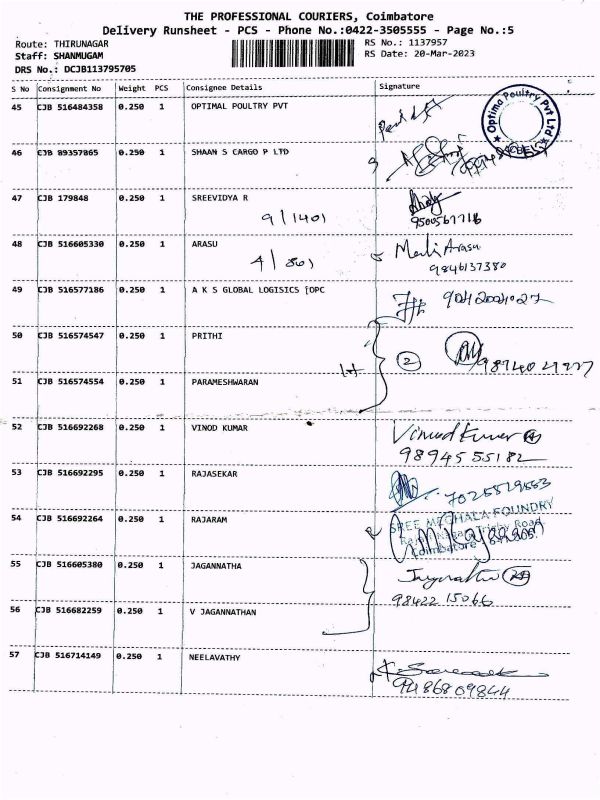 THE PROFESSIONAL COURIERS, Coimbatore
Delivery Runsheet - PCS - Phone No.:0422-3505555 - Page No.:5
Route: THIRUNAGAR RS No.: 1137957
Staff: SHANMUGAM RS Date: 20-Mar-2023
DRS No.: DCJB113795705
S No Consignment No Weight PCS Consignee Details Signature
45 CJB 516484358 0.250 1 OPTIMAL POULTRY PVT
Optima Poultry Pvt Ltd
46 CJB 89357865 0.250 1 SHAAN S CARGO P LTD
47 CJB 179848 0.250 1 SREEVIDYA R
9/1401 9500567718
48 CJB 516605330 0.250 1 ARASU Arasu
4/801 9846137380
49 CJB 516577186 0.250 1 A K S GLOBAL LOGISICS (OPC
50 CJB 516574547 0.250 1 PRITHI
2
51 CJB 516574554 0.250 1 PARAMESHWARAN
52 CJB 516692268 0.250 1 VINOD KUMAR Vinod Kumar
9894555182
53 CJB 516692295 0.250 1 RAJASEKAR
54 CJB 516692264 0.250 1 RAJARAM
SREE MEGHALA FOUNDRY
Trichy Road
Coimbatore
55 CJB 516605380 0.250 1 JAGANNATHA
98422 15066
56 CJB 516682259 0.250 1 V JAGANNATHAN
57 CJB 516714149 0.250 1 NEELAVATHY
9486809844